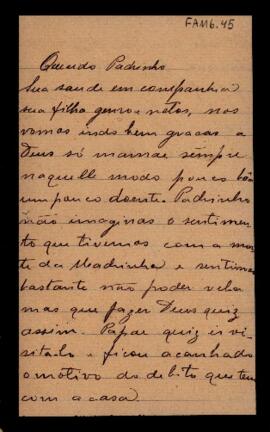 FAM6.45
Querido Padrinho
Sua saude em companhia di
sua filha genro e netos, nos
vamos indo bem graças a
Deus só mamãe sempre
naquelle modo pouco bôa
um pouco doente. Padrinho
não imaginas o sentimen-
to que tivemos com a mor-
te da Madrinha e sentimos
bastante não poder vela
mas que fazer Deus quiz
assim. Papae quiz ir vi-
sitalo e ficou acanhado
o motivo do debito que tem
com a casa.